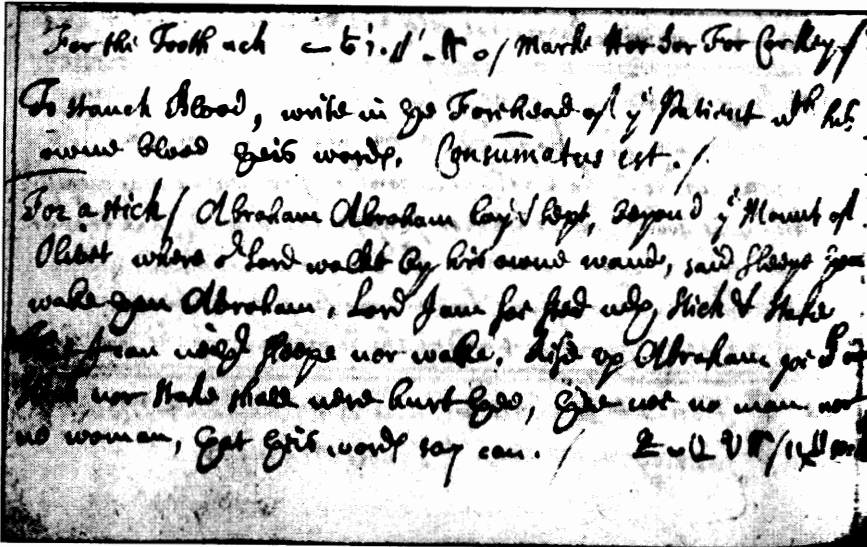 For the Tooth ach Marke For
To stanch Blood, write in þe Forehead of yᵉ Patient wᵗʰ his
owne blood þeis words, Consum̄atus est. /
For a stich / Abraham Abraham lay & slept, beyond yᵉ Mount of
Olivet where oʳ Lord walkt by his owne wand, said sleepe þou
wake þou Abraham, Lord I am sted wᵗʰ, stich & stake
I can neiþʳ sleepe nor wake, Rise vp Abraham
nor stake shall nere hurt þee, þee nor no man nor
no woman, þat þeis words say can. /